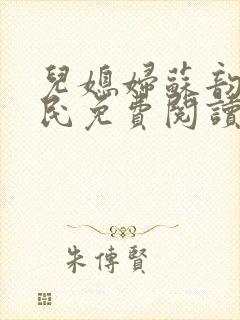 兒媳婦蘇韵
民免費閱讀
朱傳賢